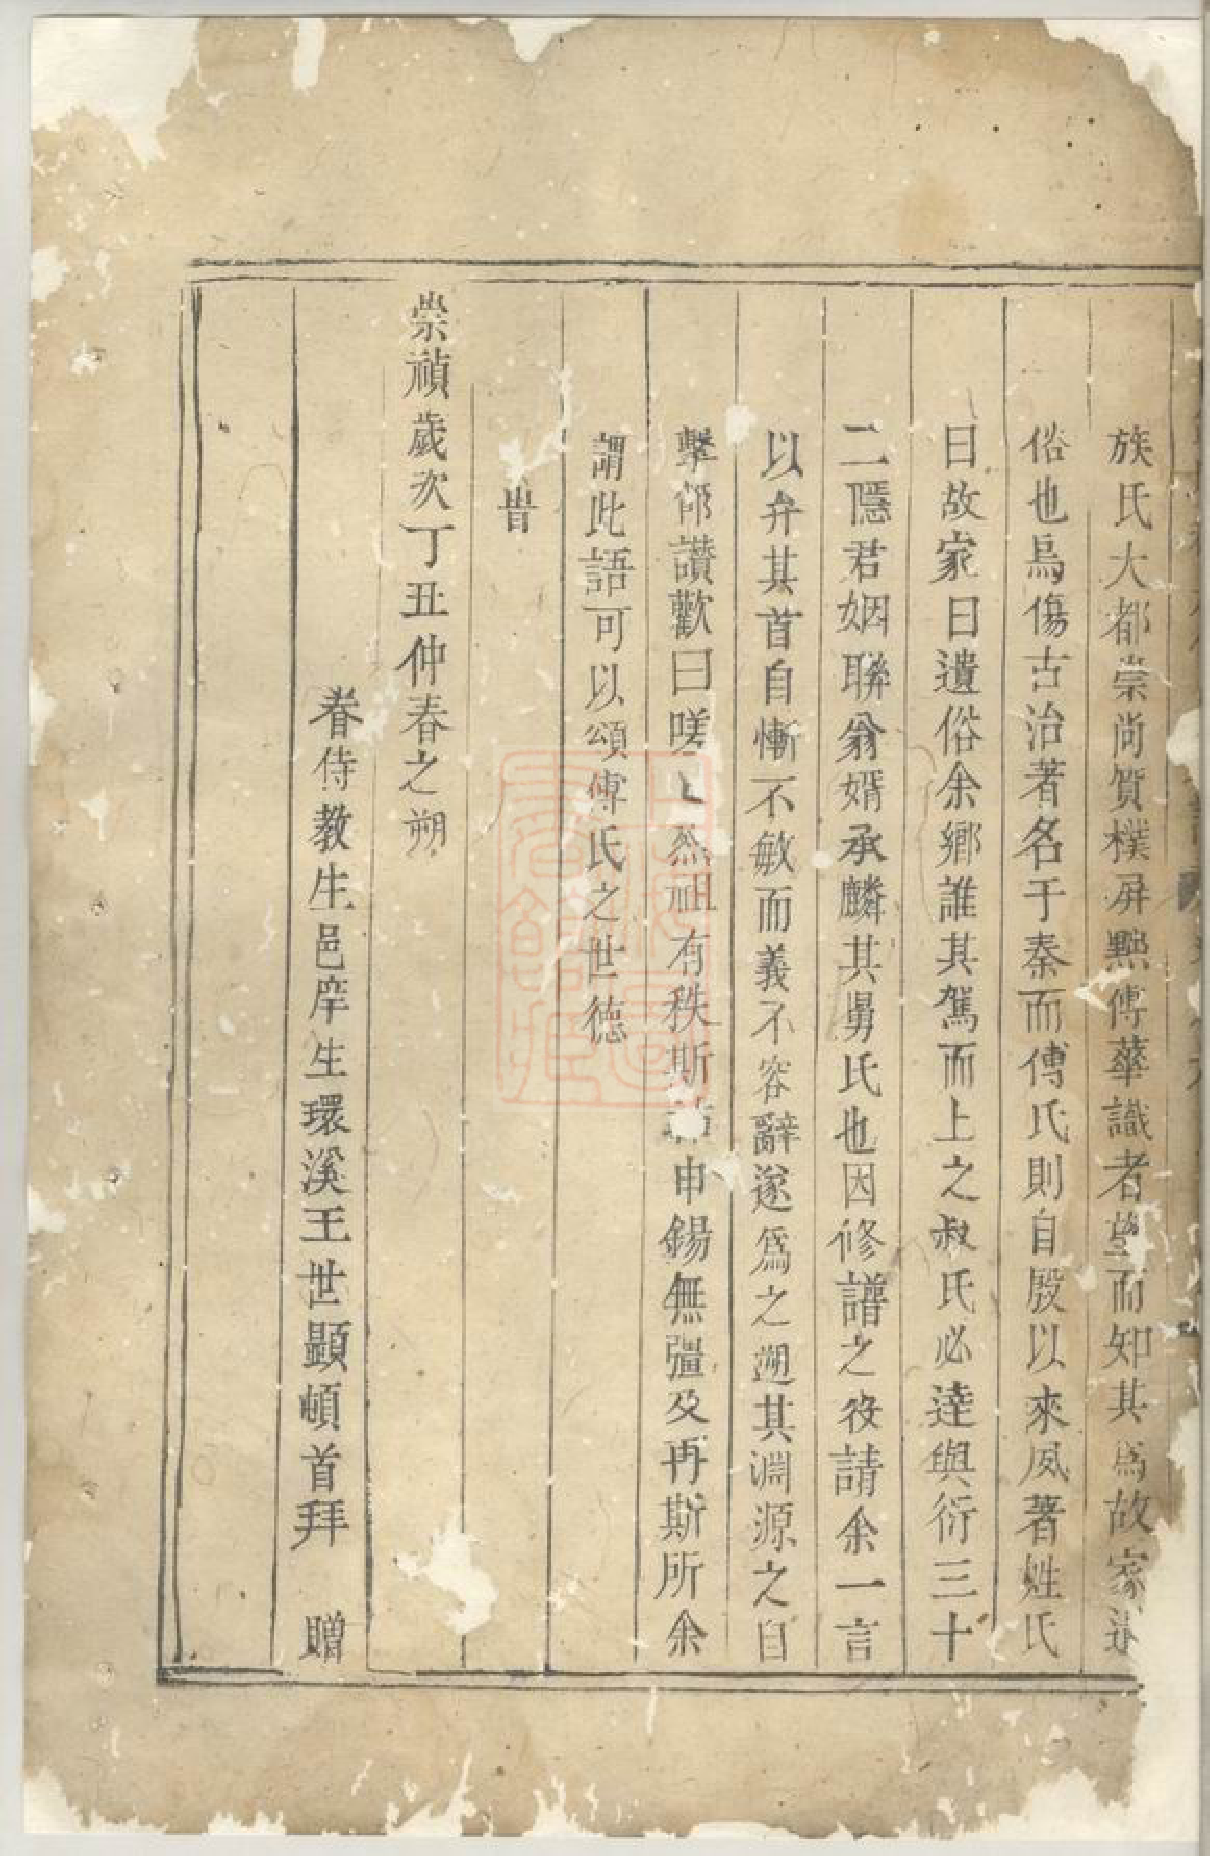 族氏大都崇尚質樸屏黜傅華識者望而知其爲故家遺
俗也烏傷古治著名于秦而傅氏則自殷以來夙著姓氏
曰故家曰遺俗余鄉誰其駕而上之叔氏必達與衍三十
二隱君姻聯翁婿承麟其舅氏也因修譜之役請余一言
以弁其首自慚不敏而義不容辭遂爲之遡其淵源之自
擊節讚歎曰嗟〻烈祖有秩斯祜申錫無彊及再斯所余
謂此語可以頌傅氏之世德
旹
崇禎歲次丁丑仲春之朔
眷侍教生邑庠生環溪王世顯頓首拜 贈